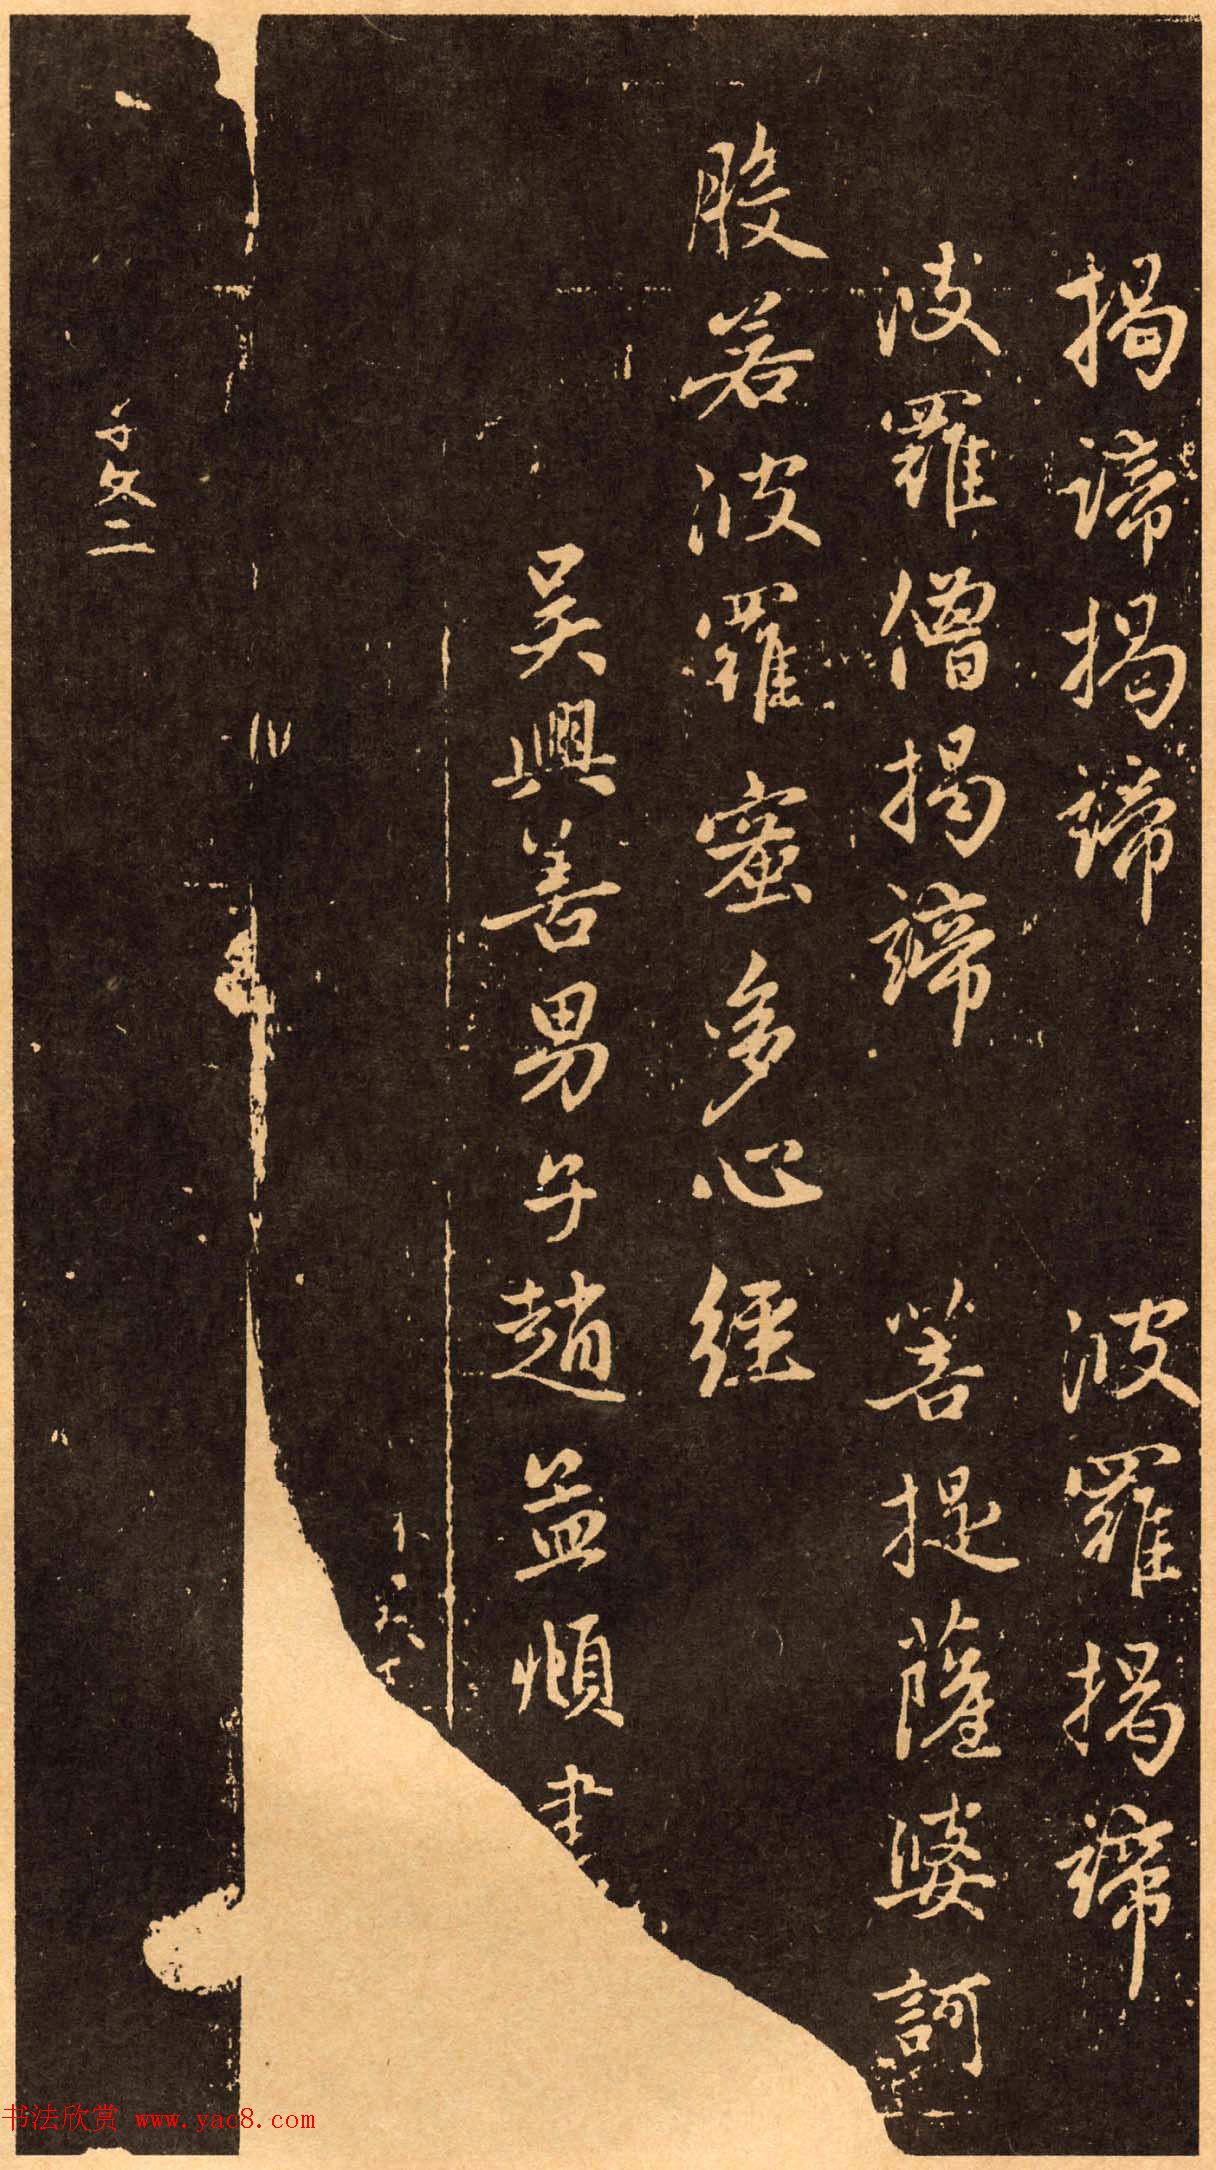 揭諦揭諦　波羅揭諦
波羅僧揭諦　菩提薩婆訶
般若波羅蜜多心經
吴興善男子趙孟頫書
子文二
书法欣赏 www.yac8.com